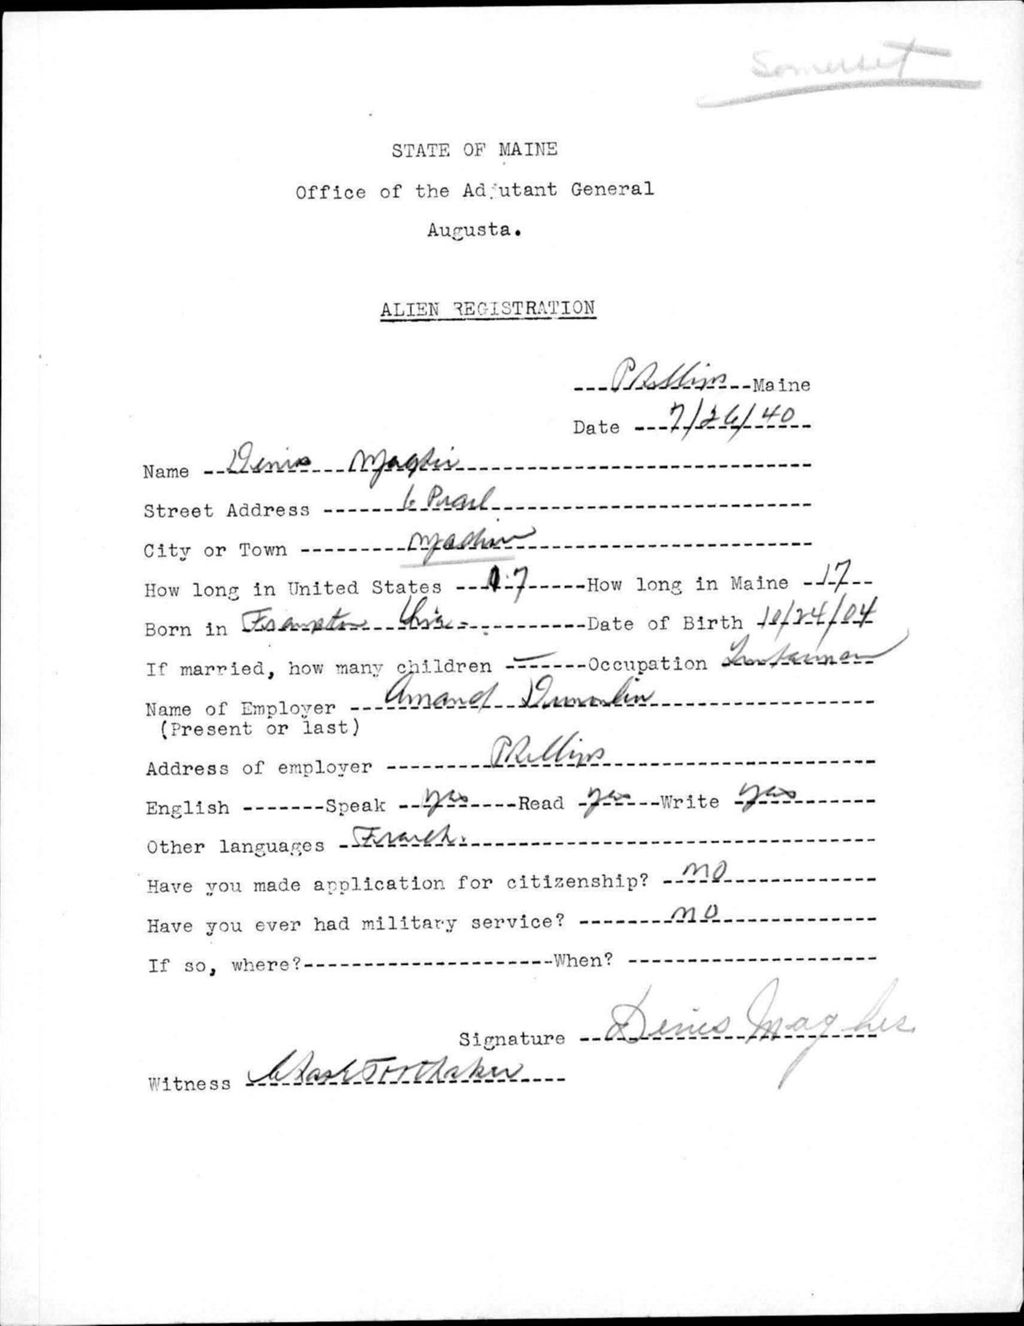 Somerset
STATE OF MAINE
Office of the Adjutant General
Augusta.
ALIEN REGISTRATION
Phillips Maine
Date 7/26/40
Name Denis
Street Address 6 Pearl
City or Town Madison
How long in United States 17 How long in Maine 17
Born in Frampton Date of Birth 10/24/04
If married, how many children - Occupation
Name of Employer Amand
(Present or last)
Address of employer Phillips
English Speak yes Read yes Write yes
Other languages French.
Have you made application for citizenship? no
Have you ever had military service? no
If so, where? When?
Signature Denis Magher
Witness